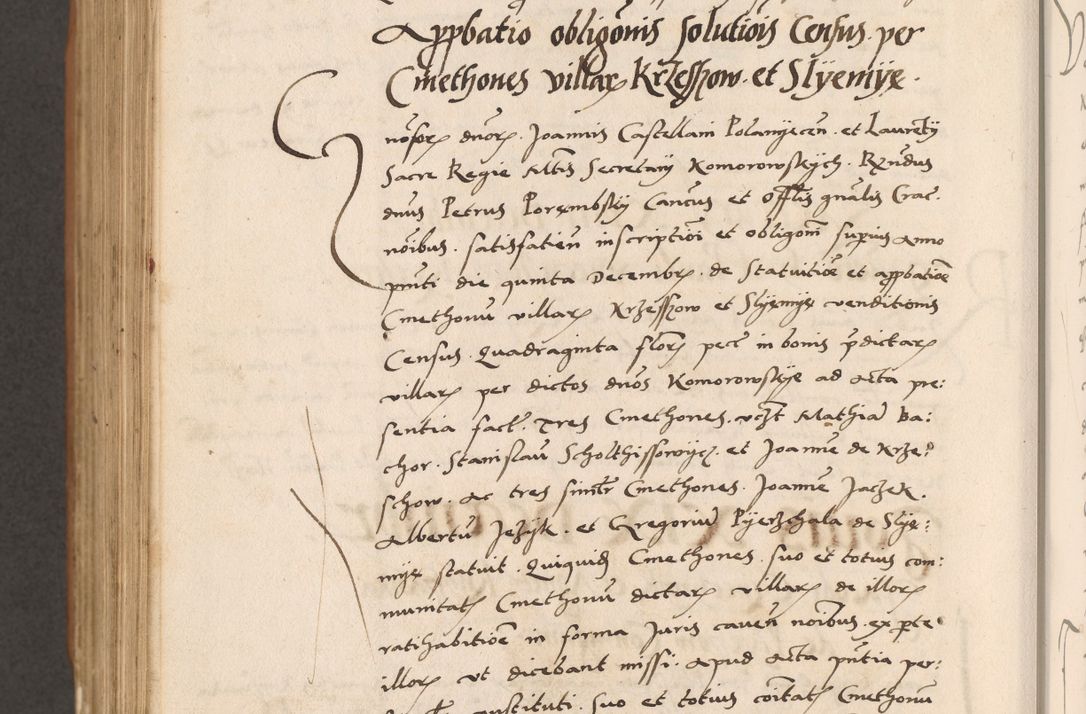 Appbatio obligõnis solutiõis Census per
Cmethones villarꝝ Krzeszow et Slyemyę.
nõsorꝝ dnorꝝ Joannis Castellani Polanyecen̄ et Laurenty
Sacre Regie Mtis Secretarij Komorowskych. Rzndus
dnus Petrus Porembsky Cancus et Offlis gnalis Crac.
nõibus satisfatien̄ inscriptiõi et obligõni supius Anno
pñti die quinta Decembrꝭ de Statuitiõe et appbatiõe
Cmethonū villarꝝ Krzesszow et Slyemyę venditionis
Census Quadraginta florꝝ pecc̄ in bonis pdictarꝝ
villarꝝ per dictos dnos Komorowskye ad Acta pre:
sentia fact̄. Tres Cmethones vczt Mathiā Ba:
chor. Stanislaū Scholthissowycz et Joannē de Krze:
schow. Ac tres simltr Cmethones Joannē Jaczek.
Albertū Jezyk. et Gregoriū Pyerzchala de Slye:
myę statuit. Quiquid Cmethones suo et totius com:
munitatꝭ Cmethonū dictarꝝ villarꝝ de illorꝝ
ratihabitiõe in forma Juris caven̄ nõibus ex pte
illorꝝ ut dicebant missi. Apud Acta pñtia per:
constituti. Suo et totius cõitatꝭ Cmethonū